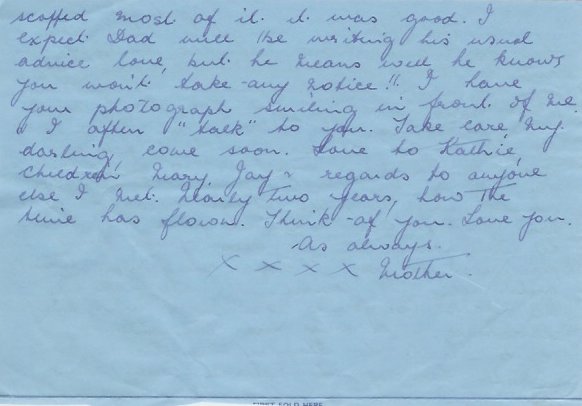 scoffed most of it. it was good. I
expect Dad will be writing his usual
advice love, but he means well he knows
you won't take any notice!! I have
your photograph smiling in front of me.
& I often "talk" to you. Take care, my
darling, come soon. Love to Kathie,
children Mary, Jay & regards to anyone
else I met. Nearly two years, how the
time has flown. Think of you. Love you.
As always.
X X X X Mother.
FIRST FOLD HERE